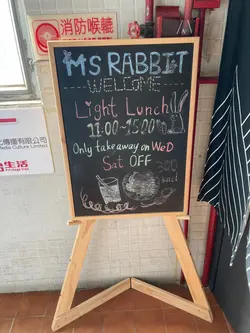 消防喉轆
MS RABBIT
WELCOME
Light Lunch
11:00~15:00
Only take away on WeD
Sat OFF
300
kcal
有限公司
edia Culture Limited
生活